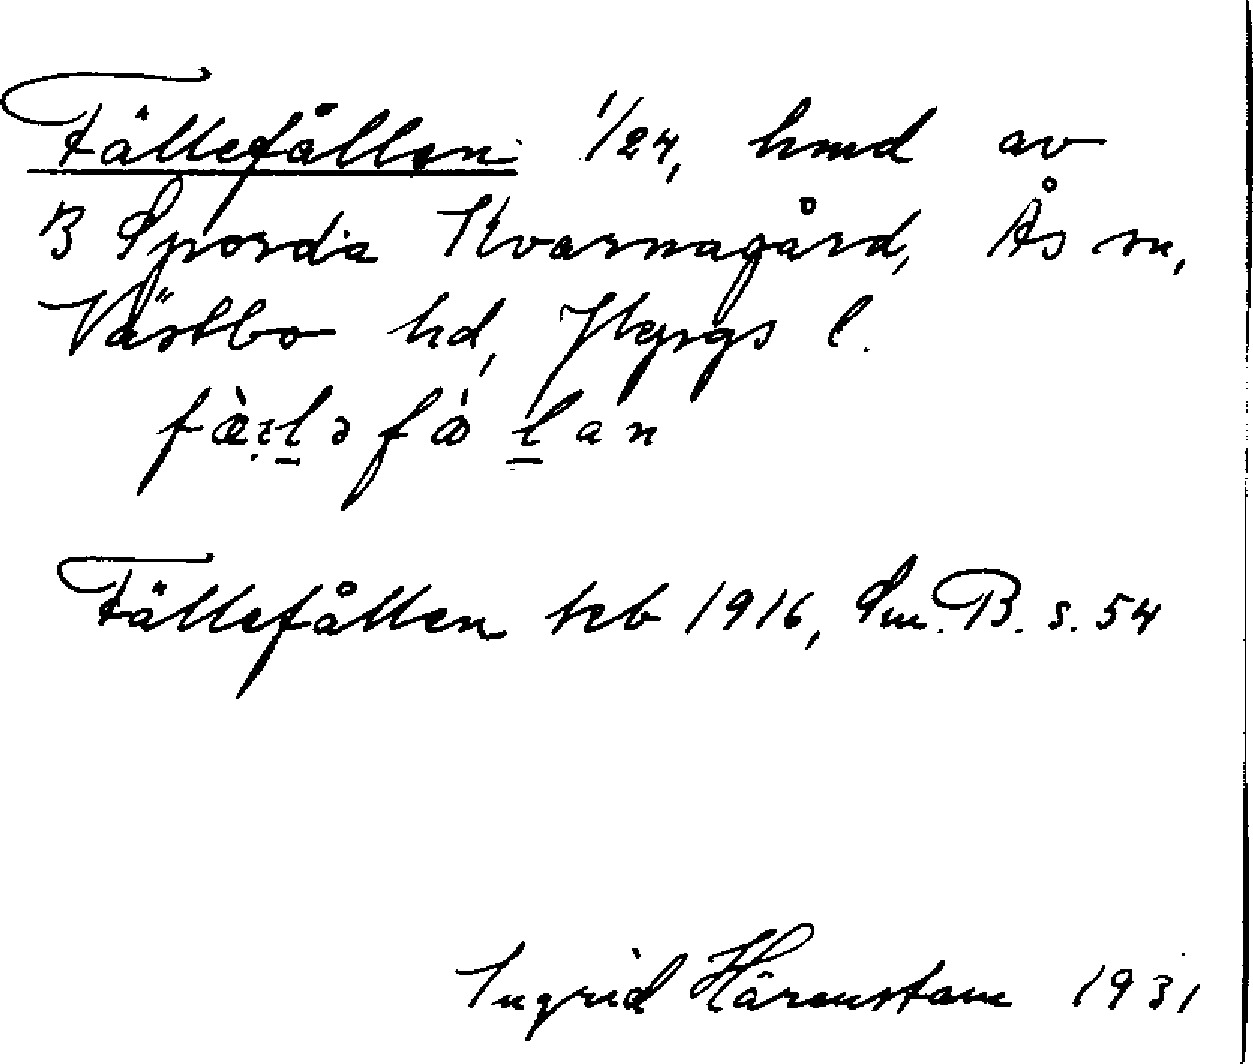 Fällefållen 1/24, hmd av
B Sporda Kvarnagård, Ås sn,
Västbo hd, Jkpgs l.
Fällefållen teb 1916, Sm. B. s. 54
Ingrid Härenstam 1931